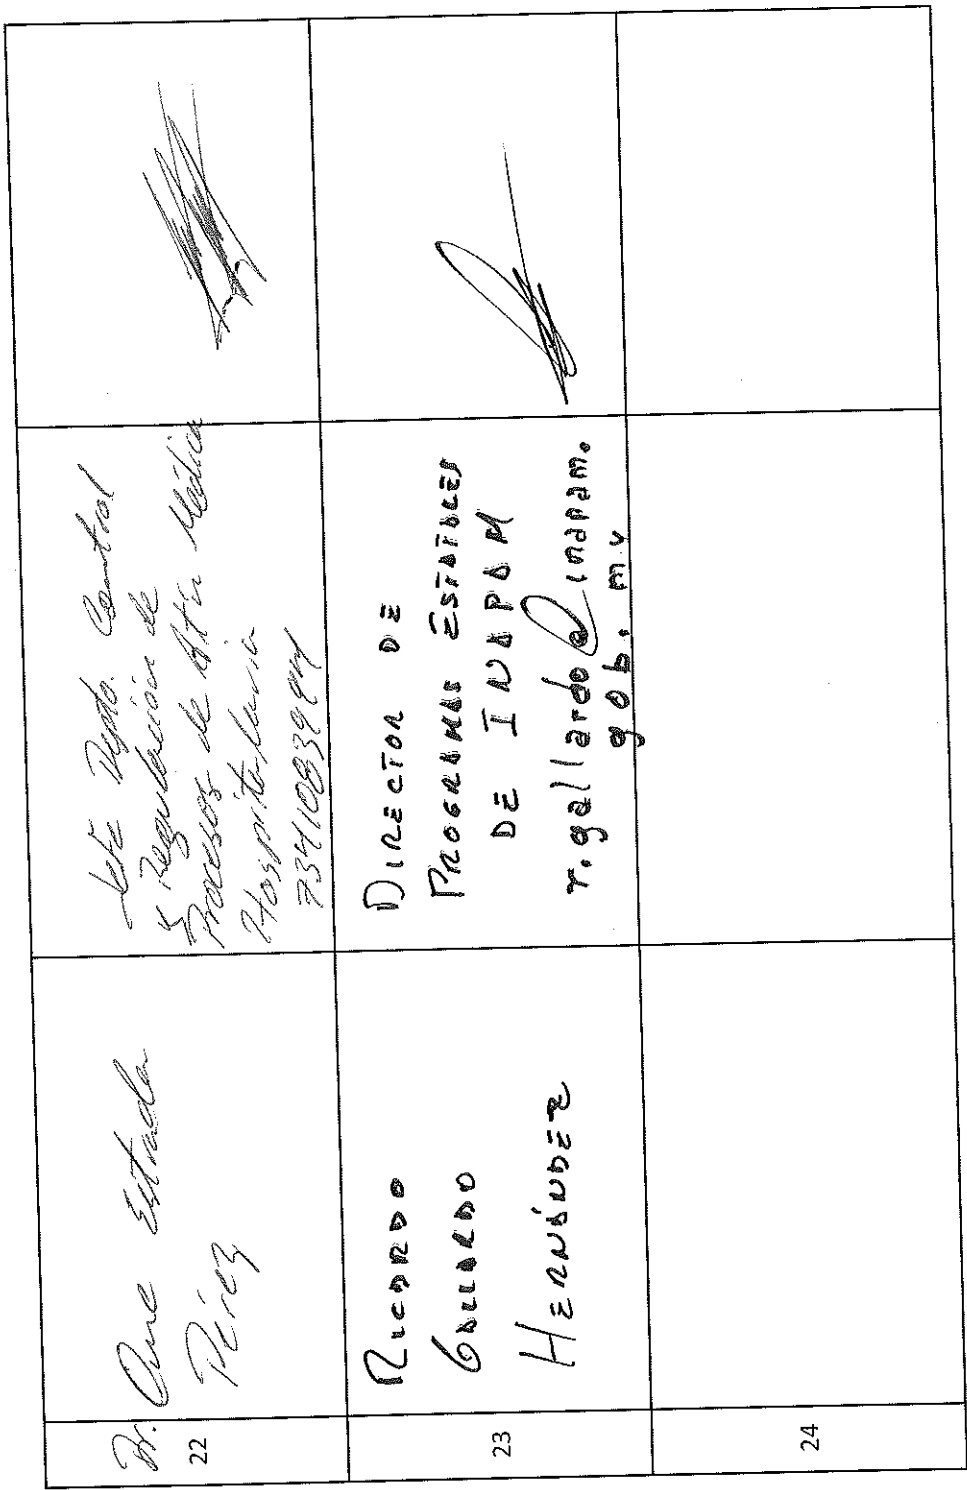 22
Dr. Estrada
Pérez
Jefe Depto. Control
y Regulación de
Procesos de Atn Médica
Hospitalaria
23
RICARDO
GALLARDO
HERNÁNDEZ
DIRECTOR DE
PROGRAMAS ESTATALES
DE INAPAM
r.gallardo@inapam.
gob.mx
24